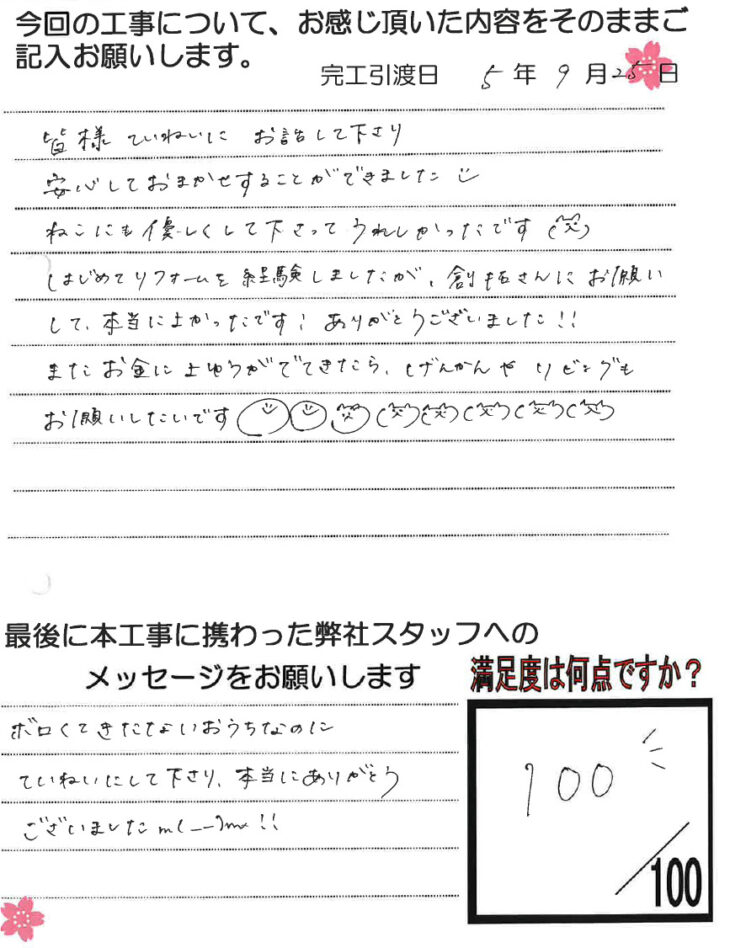 今回の工事について、お感じ頂いた内容をそのままご
記入お願いします。
完工引渡日 5年9月25日
皆様 ていねいに お話して下さり
安心しておまかせすることができました
ねこにも優しくして下さってうれしかったです
はじめてリフォームを経験しましたが、創拓さんにお願い
して、本当によかったです! ありがとうございました!!
またお金によゆうがでてきたら、げんかんや リビングも
お願いしたいです
最後に本工事に携わった弊社スタッフへの
メッセージをお願いします
満足度は何点ですか?
ボロくてきたないおうちなのに
ていねいにして下さり、本当にありがとう
ございましたm(__)m!!
100
/100